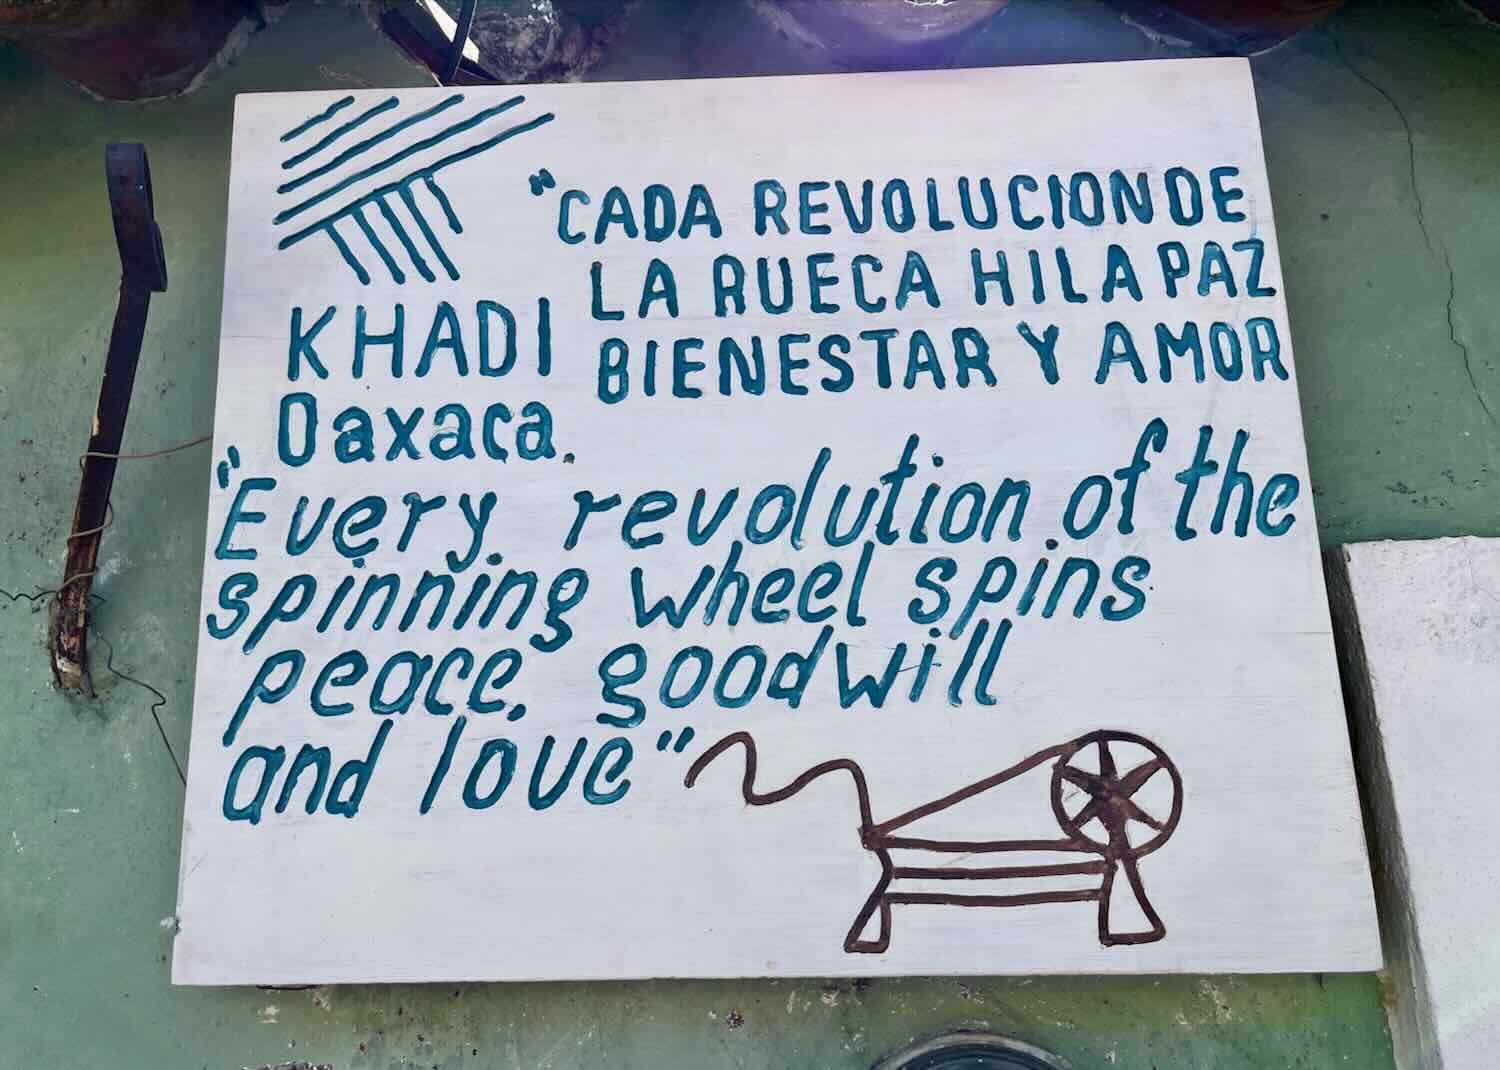 KHADI
Oaxaca.
"CADA REVOLUCION DE
LA RUECA HILA PAZ
BIENESTAR Y AMOR
"Every revolution of the
spinning wheel spins
peace, goodwill
and love"